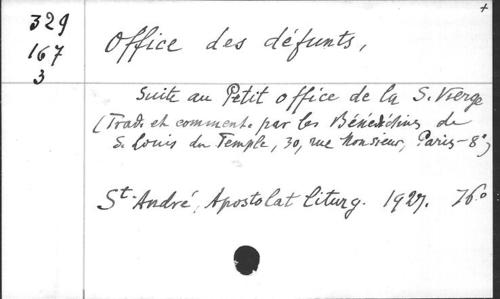 +
329
167
3
Office des défunts,
Suite au Petit office de la S. Vierge
(Trad. et comment. par les Bénédictins de
S. Louis du Temple, 30, rue Monsieur, Paris-8°)
St. André, Apostolat liturg. 1927. 76.°